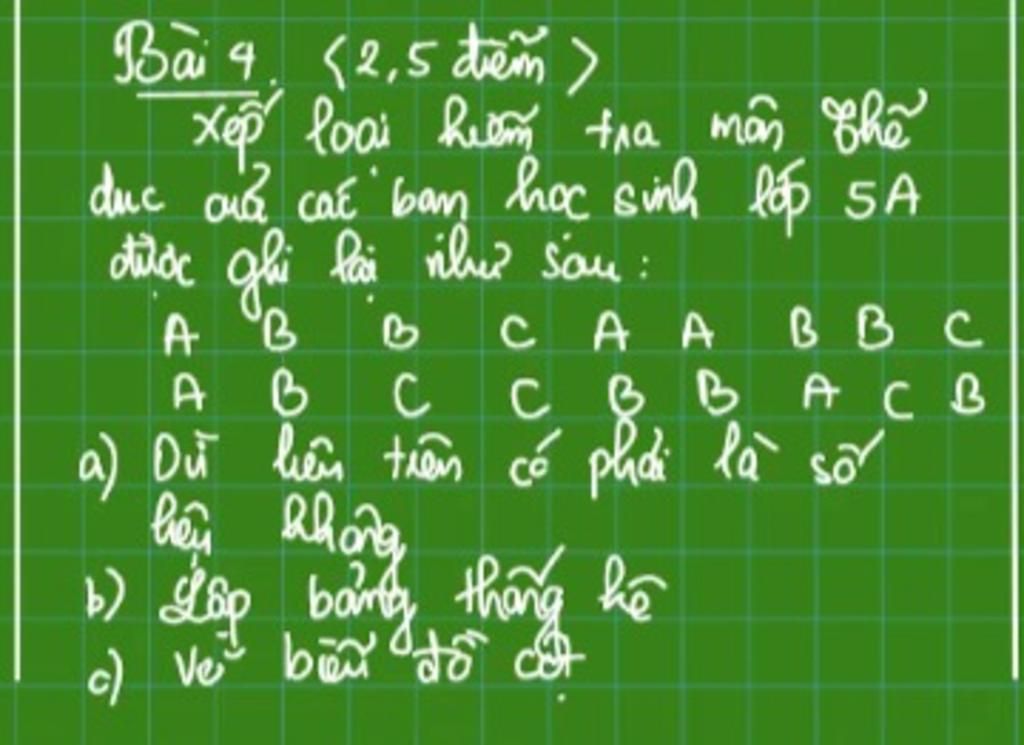 Bài 4. <2,5 điểm>
Xếp loại kiểm tra môn thể
dục của các bạn học sinh lớp 5A
được ghi lại như sau:
A B B C A A B B C
A B C C B B A C B
a) Dữ liệu trên có phải là số
liệu không
b) Lập bảng thống kê
c) Vẽ biểu đồ cột